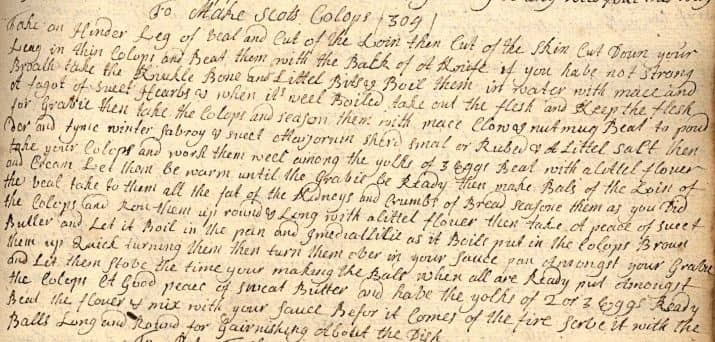 To Make Scots Colops |309|
Take an Hinder Leg of Veal and Cut of the Loin then Cut of the Skin Cut Down your
Leag in thin Colops and Beat them with the Balk of at Knife if you have not Strong
Broath take the Knukle Bone and Littel Bits & Boil them in water with mace and
at fagot of Sweet Hearbs & when it's weel Boiled take out the flesh and Keep the flesh
for Gravie then take the Colops and season them with mace Clows & nutmug Beat to poud
Dor and tyme winter savroy & sweet Marjorum sherd smal or Rubed & A Littel salt then
take your Colops and work them weel among the yolks of 3 Eggs Beat with a Littel flower
and Cream Let tham be warm until the Gravie be Ready then make Bals of the Loin of
the veal take to them all the fat of the Kidneys and Crumbs of Bread seasone them as you Did
the Colops and Rou them up round & Long with a Littel flower then take at peace of sweet
Butter and Let it Boil in the pan and Imediatlilie as it Boils put in the Colops Broun
them up Quick turning them then turn them over in your Sauce pan amongst your Gravie
and Let them stove the time your making the Bals when all are Ready put amongst
the Colops at Good peace of sweat Butter and have the yolks of 2 or 3 Eggs Ready
Beat the flower & mix with your Sauce Befor it Comes of the fire serve it with the
Balls Long and Round for Gairnishing About the Dish